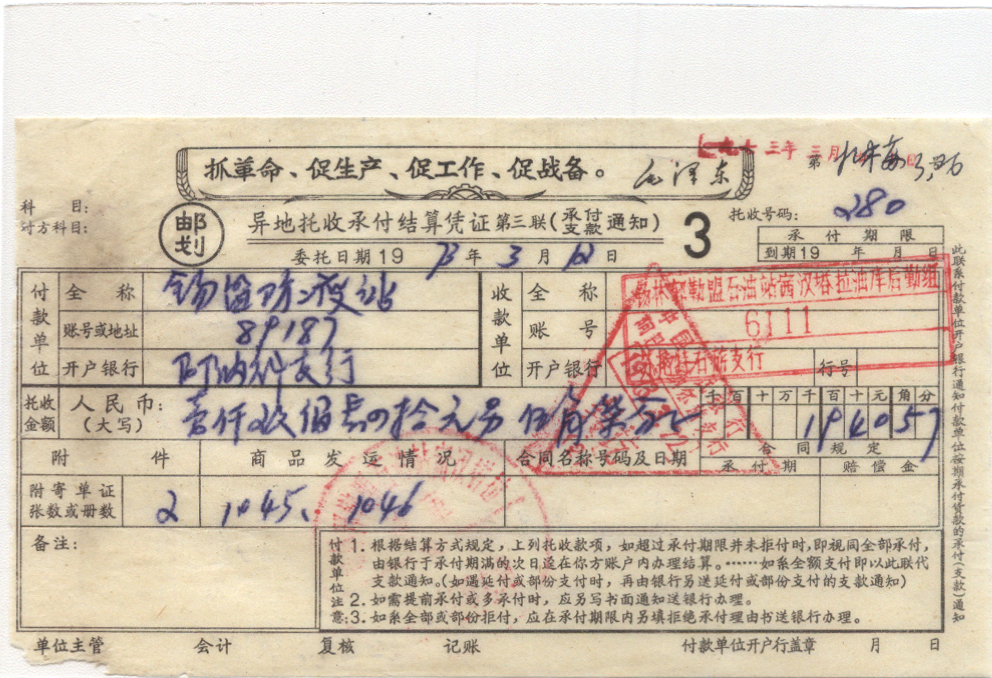 抓革命、促生产、促工作、促战备。 毛泽东
三年 三月
第 号
科 目:
对方科目:
邮划
异地托收承付结算凭证 第三联(承付支款通知)
3
托收号码: 280
承付期限
到期19 年 月 日
委托日期19 73 年 3 月 10 日
付款单位
全 称
账号或地址 89187
开户银行 支行
收款单位
全 称 锡林郭勒盟石油站赛汉塔拉油库后勤组
账 号 6111
开户银行 支行 行号
托收金额
人民币:(大写) 壹仟玖佰肆拾元另伍角柒分
千百十万千百十元角分
194057
附 件
商品发运情况
合同名称号码及日期
合同规定
承付期
赔偿金
附寄单证张数或册数 2
1045、1046
备注:
付款单位注意:
1.根据结算方式规定,上列托收款项,如超过承付期限并未拒付时,即视同全部承付,
由银行于承付期满的次日迳在你方账户内办理结算。……如系全额支付即以此联代
支款通知。(如遇延付或部份支付时,再由银行另送延付或部份支付的支款通知)
2.如需提前承付或多承付时,应另写书面通知送银行办理。
3.如系全部或部份拒付,应在承付期限内另填拒绝承付理由书送银行办理。
此联系付款单位开户银行通知付款单位按期承付货款的承付(支款)通知
单位主管 会计 复核 记账 付款单位开户行盖章 月 日